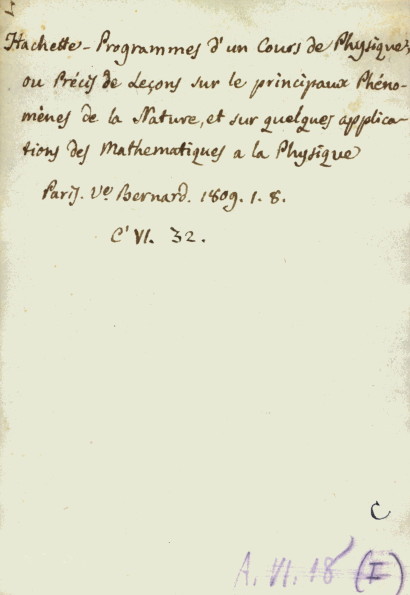 Hachette - Programmes d'un Cours de Physique;
ou Précis de Leçons sur le principaux Phéno-
mènes de la Nature, et sur quelques applica-
tions des Mathematiques a la Physique
Paris. Ve. Bernard. 1809. 1. 8.
C' VI. 32.
C
A. VI. 18 (I)